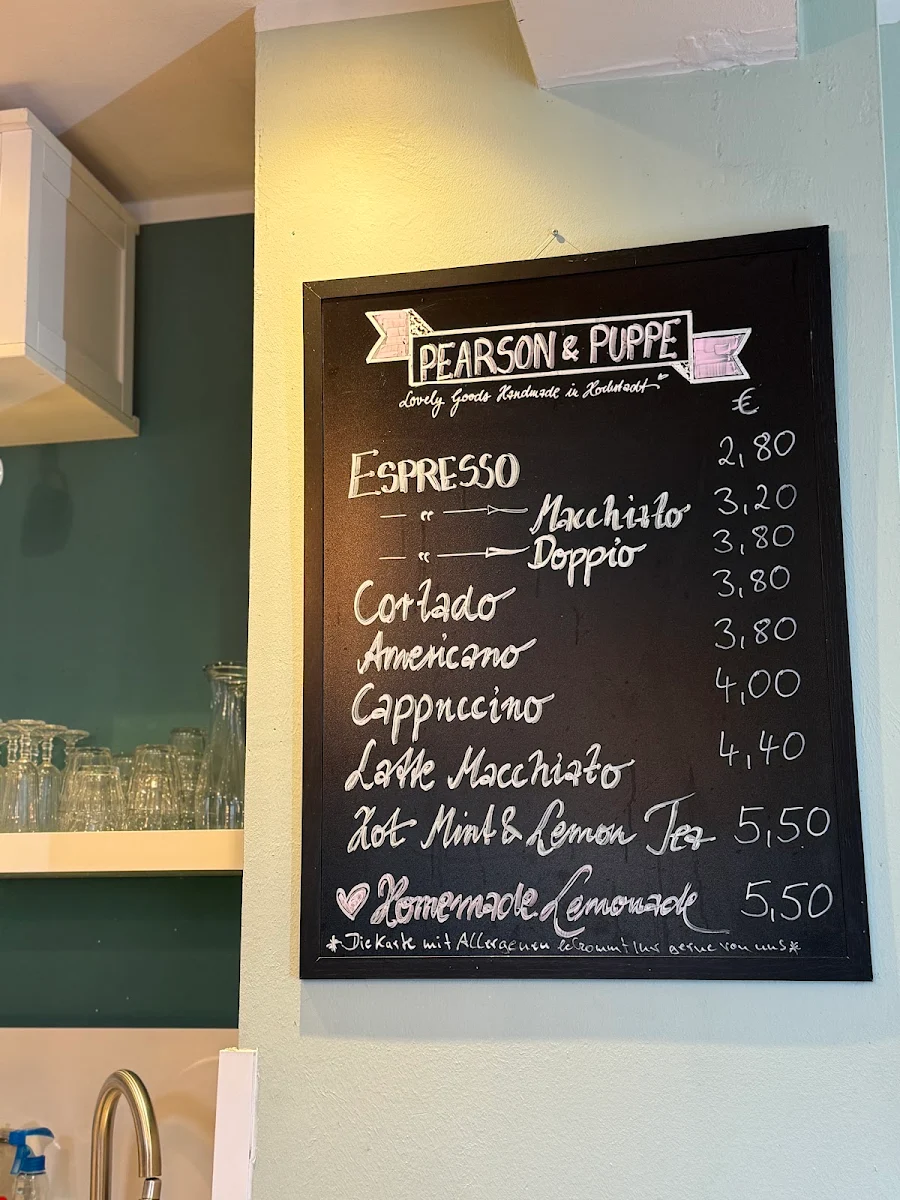 PEARSON & PUPPE
Lovely Goods Handmade in Hochstadt
€
ESPRESSO 2,80
— " → Macchiato 3,20
— " → Doppio 3,80
Cortado 3,80
Americano 3,80
Cappuccino 4,00
Latte Macchiato 4,40
Hot Mint & Lemon Tea 5,50
♥ Homemade Lemonade 5,50
*Die Karte mit Allergenen bekommt Ihr gerne von uns*